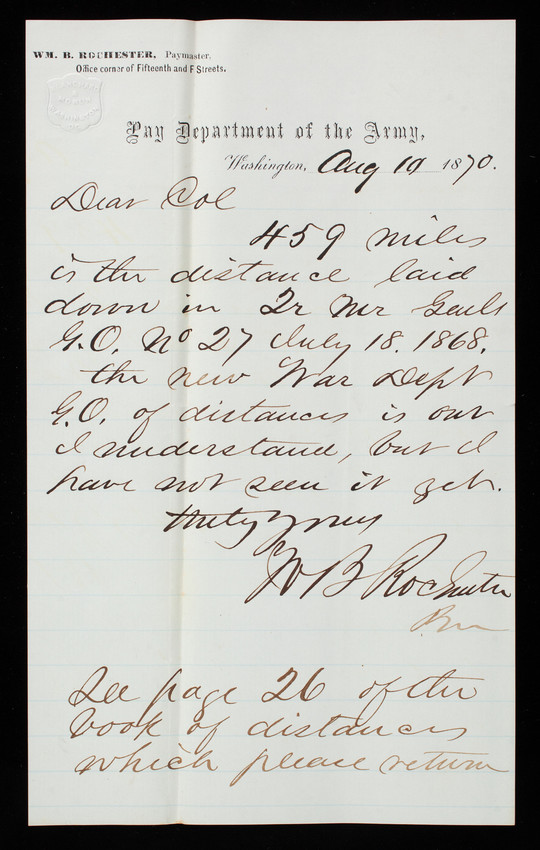 WM. B. ROCHESTER, Paymaster.
Office corner of Fifteenth and F Streets.
Pay Department of the Army,
Washington, Aug 19 1870.
Dear Col
459 miles
is the distance laid
down in Qr Mr Genls
G.O. No 27 July 18. 1868.
the new War Dept
G.O. of distances is out
I understand, but I
have not seen it yet.
truly yours
W B Rochester
see page 26 of the
book of distances
which please return